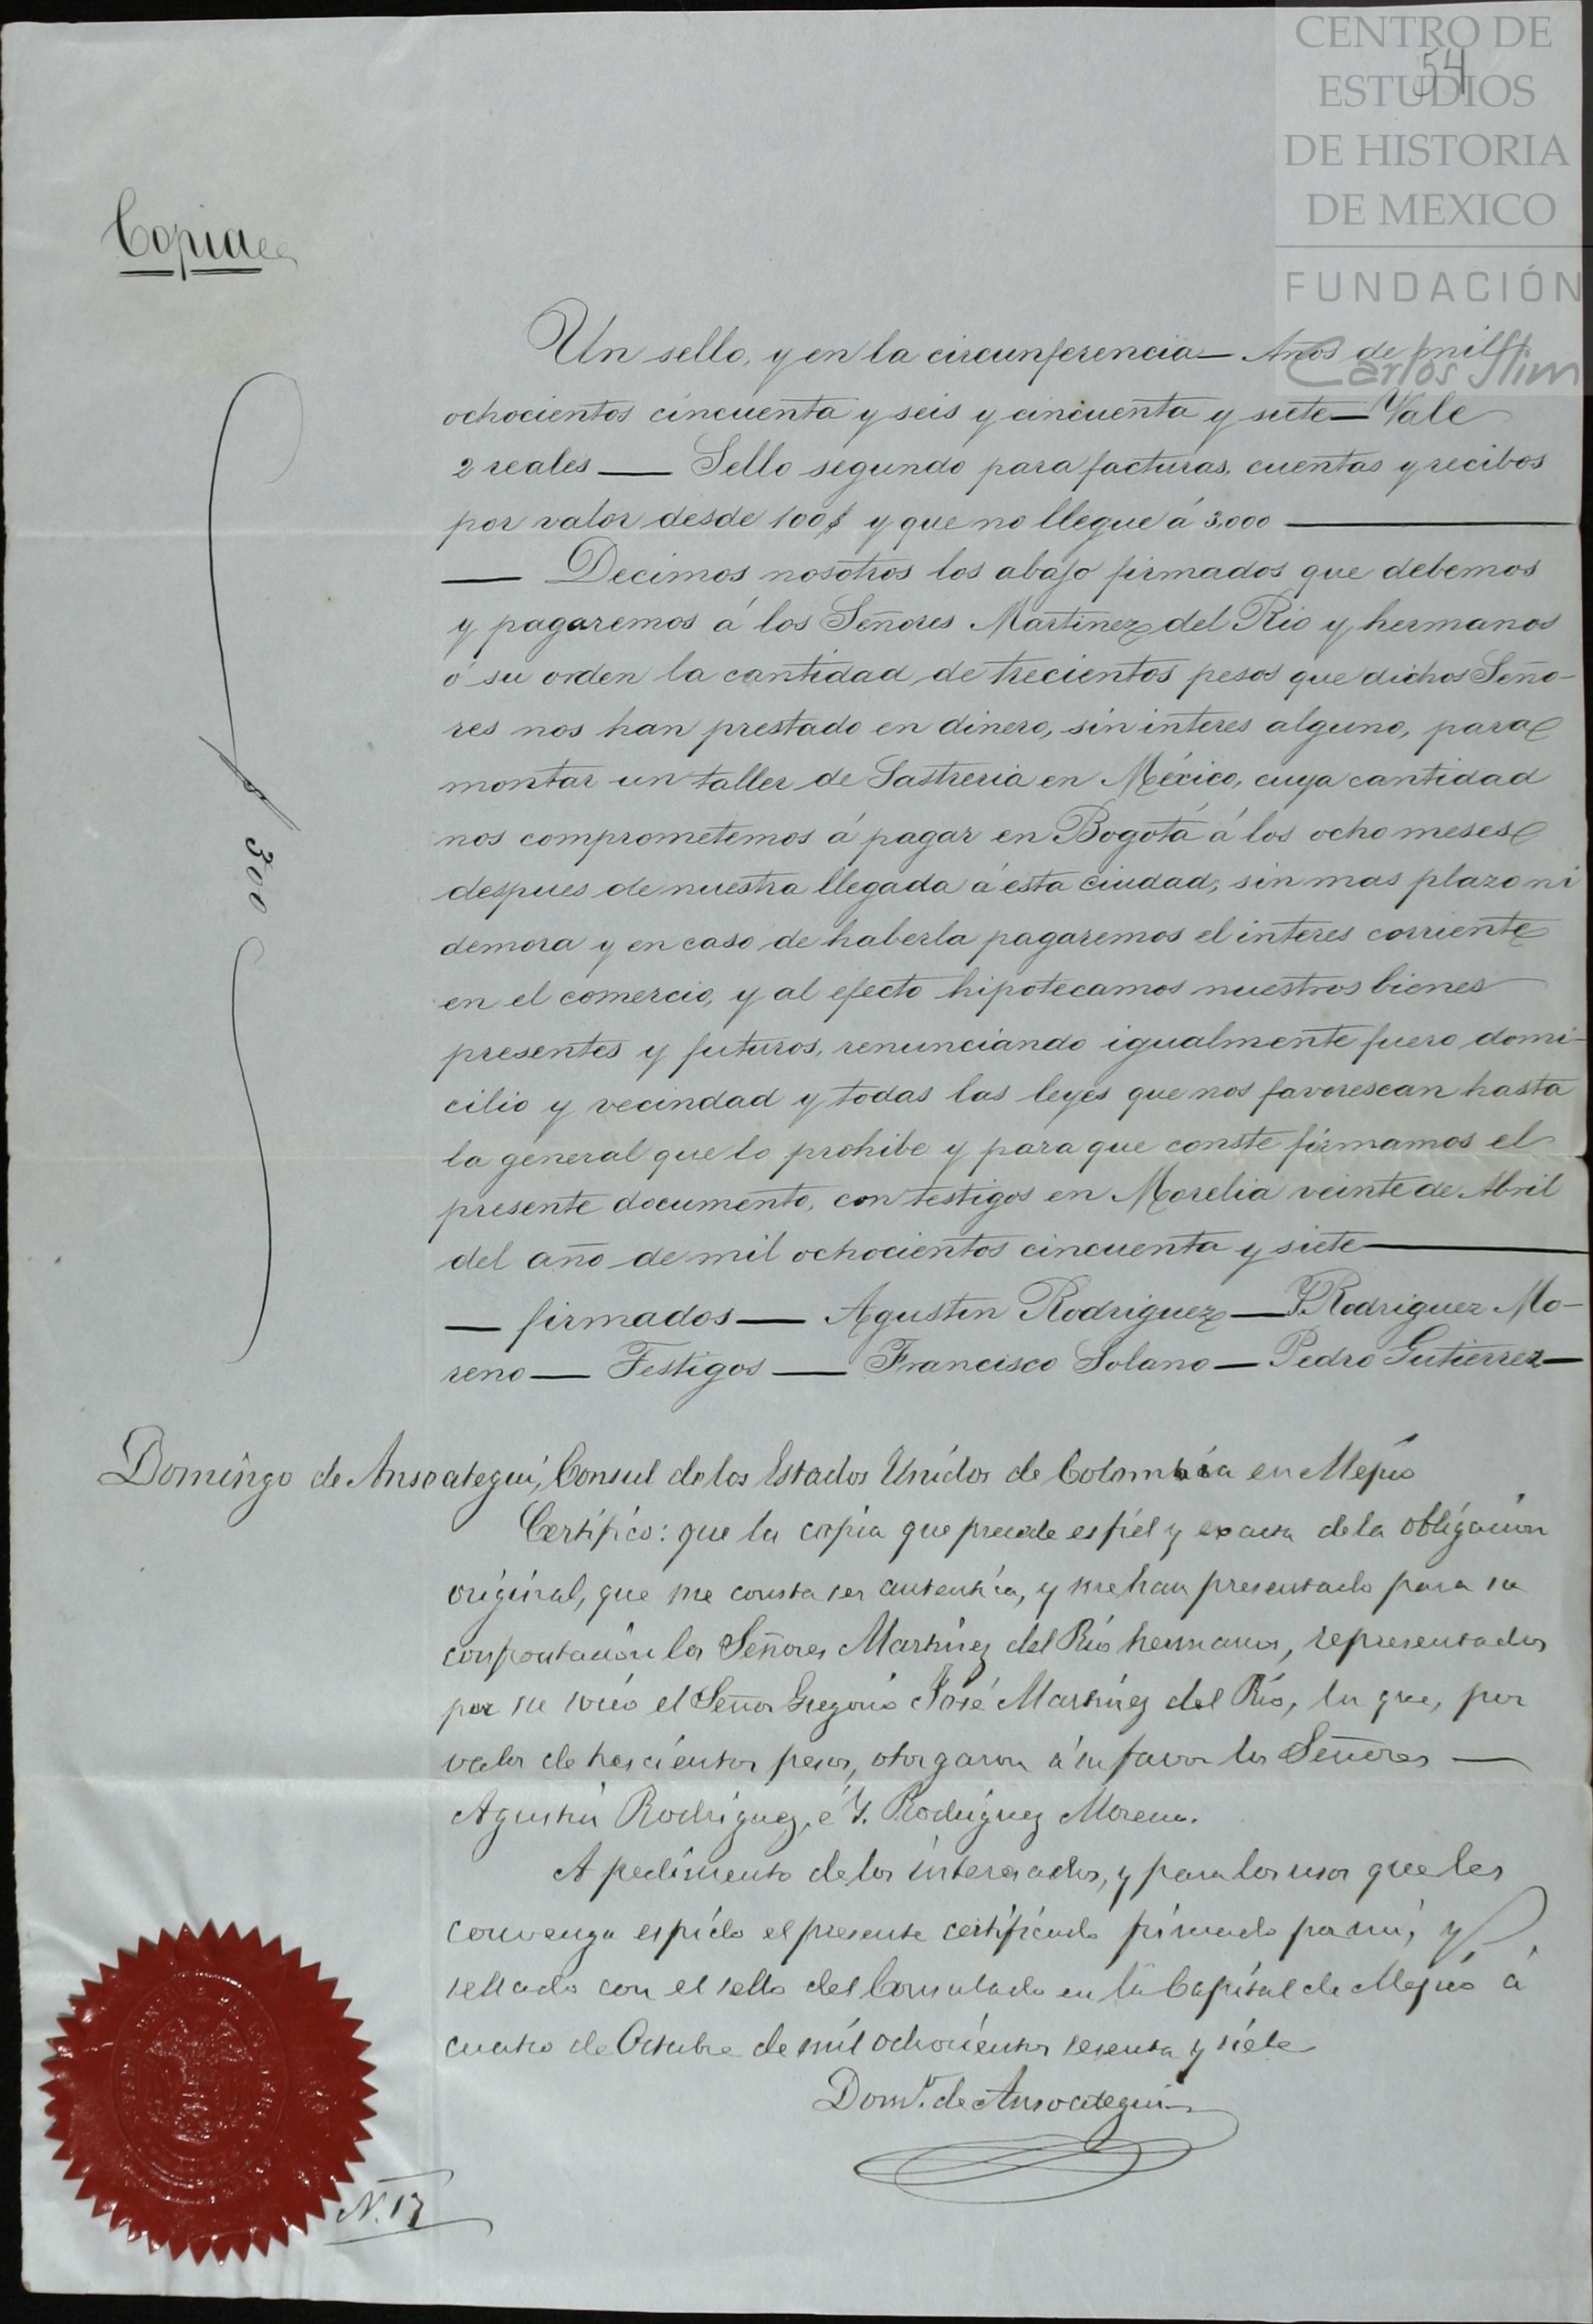 CENTRO DE
ESTUDIOS
DE HISTORIA
DE MEXICO
FUNDACIÓN
Carlos Slim
54
Copia
Un sello, y en la circunferencia — Años de mil
ochocientos cincuenta y seis y cincuenta y siete — Vale
2 reales — Sello segundo para facturas, cuentas y recibos
por valor desde 100$ y que no llegue á 3,000 —
— Decimos nosotros los abajo firmados que debemos
y pagaremos á los Señores Martinez del Rio y hermanos
ó su orden la cantidad de trecientos pesos que dichos Seño-
res nos han prestado en dinero, sin interes alguno, para
montar un taller de Sastreria en México, cuya cantidad
nos comprometemos á pagar en Bogotá á los ocho meses
despues de nuestra llegada á esta ciudad, sin mas plazo ni
demora y en caso de haberla pagaremos el interes corriente
en el comercio, y al efecto hipotecamos nuestros bienes
presentes y futuros, renunciando igualmente fuero domi-
cilio y vecindad y todas las leyes que nos favorescan hasta
la general que lo prohibe y para que conste firmamos el
presente documento, con testigos en Morelia veinte de Abril
del año de mil ochocientos cincuenta y siete —
— firmados — Agustin Rodriguez — Y. Rodriguez Mo-
reno — Testigos — Francisco Solano — Pedro Gutierrez —
$ 300
Domingo de Ansoategui, Consul de los Estados Unidos de Colombia en Mejico
Certifico: que la copia que precede es fiel y exacta de la obligacion
original, que me consta ser autentica, y me han presentado para su
confrontacion los Señores Martinez del Rio hermanos, representados
por su socio el Señor Gregorio José Martinez del Rio, la que, por
valor de trescientos pesos, otorgaron á su favor los Señores —
Agustin Rodriguez, é Y. Rodriguez Moreno.
A pedimento de los interesados, y para los usos que les
convenga espido el presente certificado firmado por mi, y
sellado con el sello del Consulado en la Capital de Mejico á
cuatro de Octubre de mil ochocientos sesenta y siete
Domo. de Ansoategui
N. 17